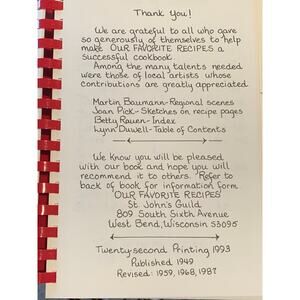 Thank You!
We are grateful to all who gave
so generously of themselves to help
make OUR FAVORITE RECIPES a
successful cookbook.
Among the many talents needed
were those of local artists whose
contributions are greatly appreciated.
Martin Baumann-Regional scenes
Joan Pick-Sketches on recipe pages
Betty Rauen-Index
Lynn Duwell-Table of Contents
We know you will be pleased
with our book and hope you will
recommend it to others. Refer to
back of book for information form
"OUR FAVORITE RECIPES"
St John's Guild
809 South Sixth Avenue
West Bend, Wisconsin 53095
Twenty-second Printing 1993
Published 1949
Revised: 1959, 1968, 1987